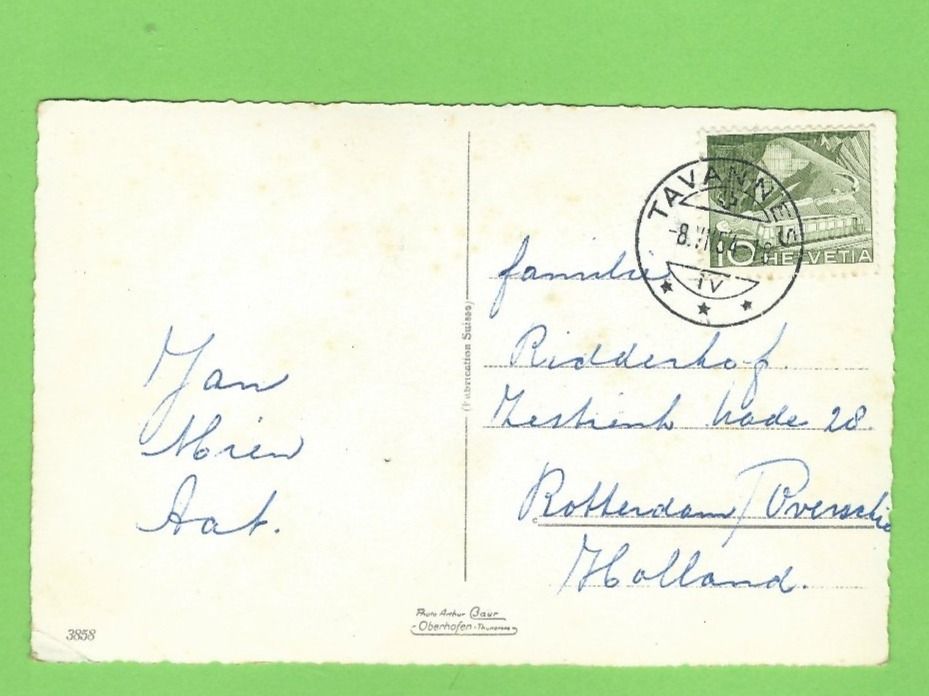 Jan
Mien
Aat.
(Fabrication Suisse)
TAVANNES
IV
10 HELVETIA
familie
Ridderhof.
Zestienh kade 28.
Rotterdam/Overschie
Holland.
3858
Photo Arthur Baur
Oberhofen-Thunersee